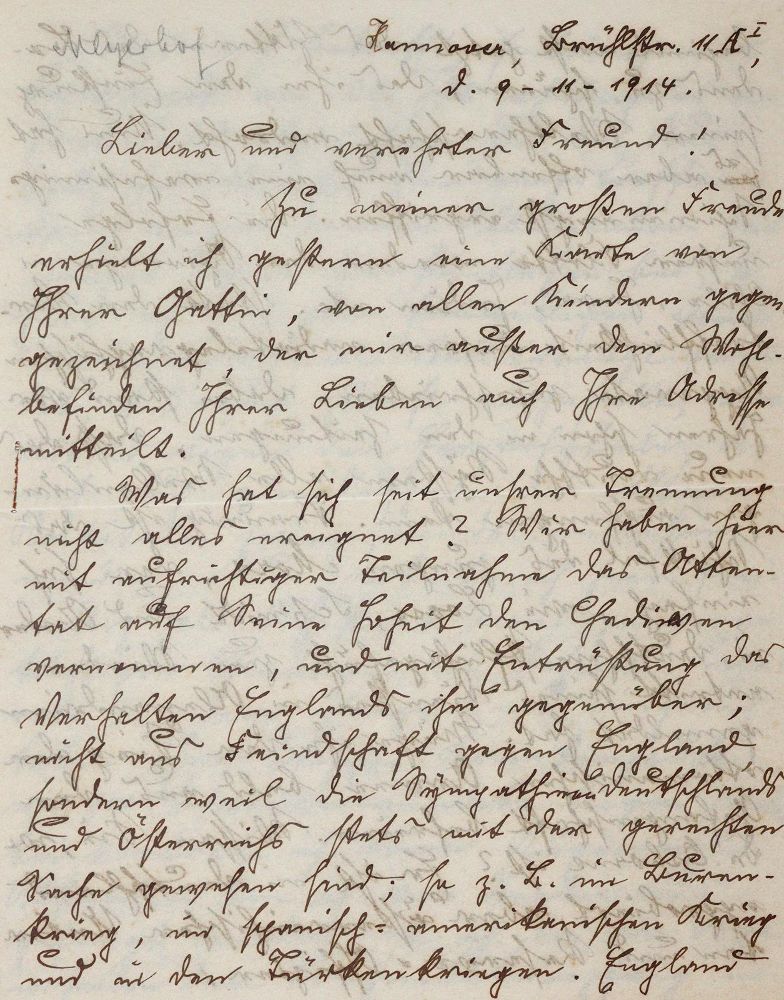 Meyerhof
Hannover, Brühlstr. 11 A I,
d. 9-11-1914.
Lieber und verehrter Freund!
Zu meiner großen Freude
erhielt ich gestern eine Karte von
Ihrer Gattin, von allen Kindern gegen
gezeichnet, der mir außer dem Wohl-
befinden Ihrer Lieben auch Ihre Adresse
mitteilt.
Was hat sich seit unsrer Trennung
nicht alles ereignet? Wir haben hier
mit aufrichtiger Teilnahme das Atten-
tat auf Seine Hoheit den Chediven
vernommen, und mit Entrüstung das
Verhalten Englands ihm gegenüber;
nicht aus Feindschaft gegen England,
sondern weil die Sympathieen Deutschlands
und Österreichs stets mit der gerechten
Sache gewesen sind; so z. B. im Buren-
krieg, im spanisch-amerikanischen Krieg
und in den Türkenkriegen. England